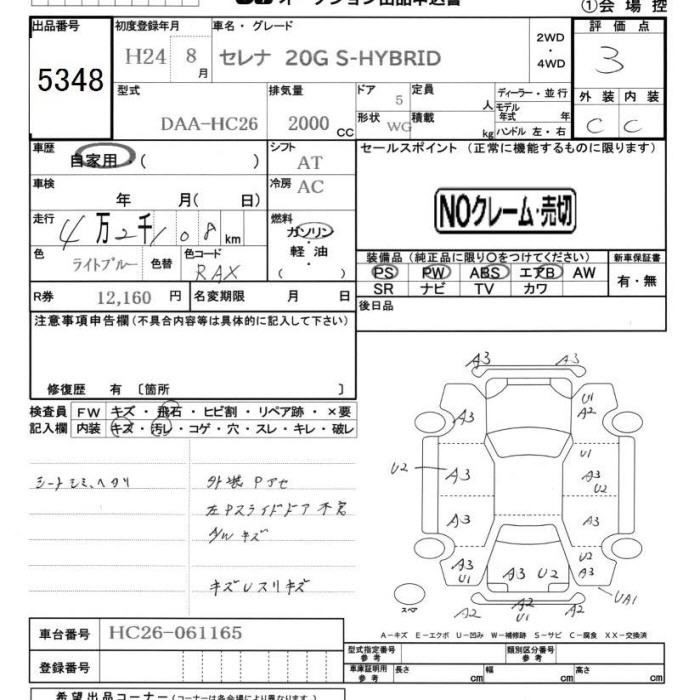 オークション出品申込書
①会場控
出品番号
5348
初度登録年月
H24 8月
車名・グレード
セレナ 20G S-HYBRID
2WD
・
4WD
評価点
3
型式
DAA-HC26
排気量
2000 CC
ドア 5
形状 WG
定員 人
積載 kg
ディーラー・並行
モデル年式 年
ハンドル 左・右
外装 内装
C C
車歴
自家用・( )
シフト
AT
車検
年 月( 日)
冷房 AC
走行
4万2千108km
燃料
ガソリン
軽油
( )
色
ライトブルー
色替
色コード
RAX
R券 12,160円
名変期限 月 日
セールスポイント (正常に機能するものに限ります)
NOクレーム・売切
装備品 (純正品に限り〇をつけてください)
新車保証書
PS PW ABS エアB AW
SR ナビ TV カワ
有・無
後日品
注意事項申告欄(不具合内容等は具体的に記入して下さい)
修復歴 有 〔箇所 〕
検査員記入欄
FW キズ・飛石・ヒビ割・リペア跡・×要
内装 キズ・汚レ・コゲ・穴・スレ・キレ・破レ
シートシミ、ヘタリ
外装Pアセ
左Pスライドドア不良
N/Wキズ
キズUスリキズ
A3 A3
A3 U1 A2
U2 A3 U1 A3 U2
A3 A3
A3 U1 A3 U2 U2 A3
スペ A2 A2 A3 UA1
A－キズ E－エクボ U－凹み W－補修跡 S－サビ C－腐食 XX－交換済
車台番号 HC26-061165
登録番号
型式指定番号 参考
類別区分番号 参考
車庫証明用 参考 長さ cm 幅 cm 高さ cm
希望出品コーナー (コーナーは各会場により異なります。